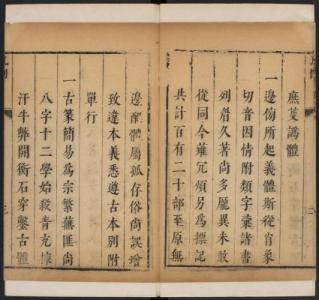 庶芟譌體
一邊傍所起義體斯從肖象
切音因情附類字彙諸書
列眉久著尚多厖異未敢
從同今雖冗煩另為標記
共計百有二十部至原無
邊配體屬孤存俗尚誤增
致違本義悉遵古本別附
單行
一古篆簡易為宗繁蕪匪尚
八字十二學始殺青充棟
汗牛弊開衡石穿鑿古體